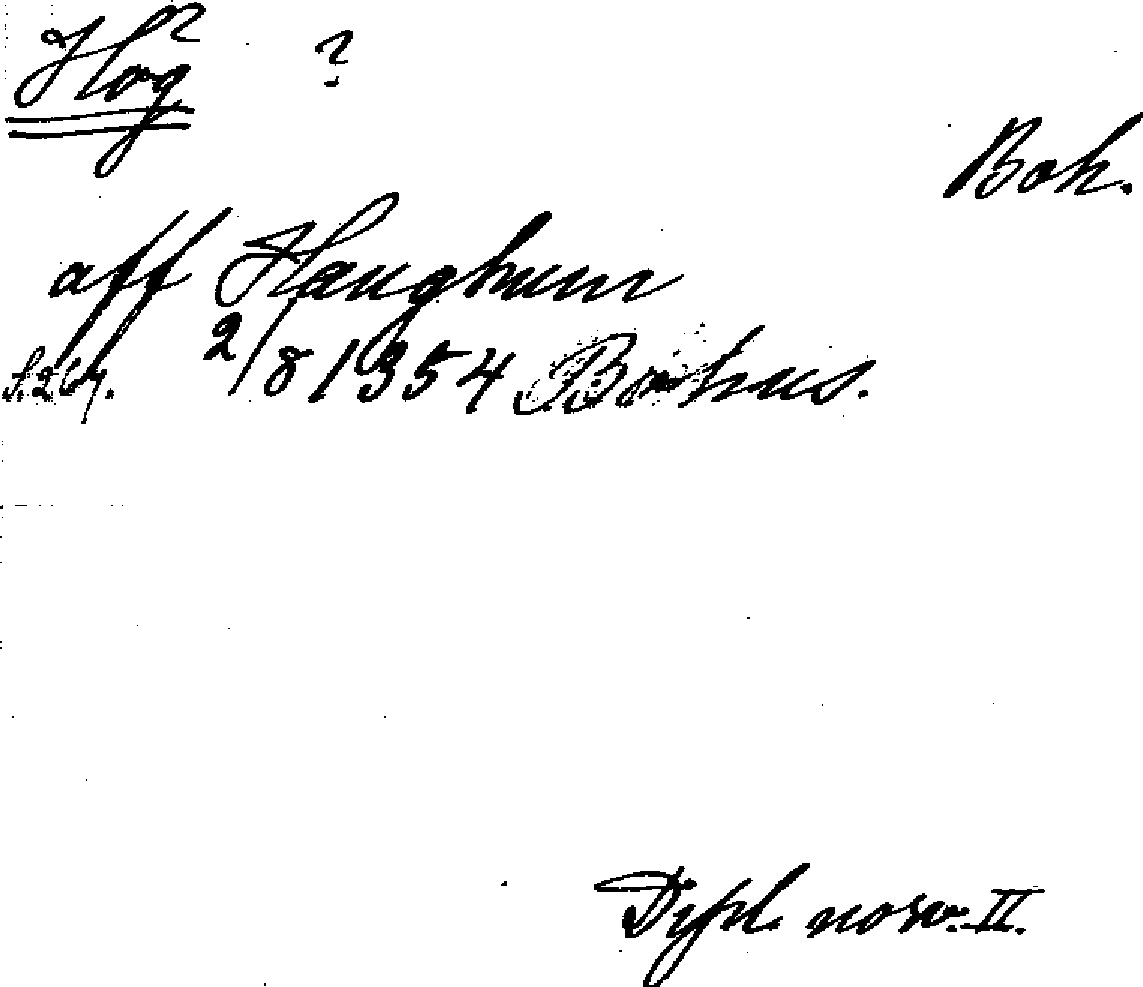 Hög ?
Boh.
aff Haughum
S. 264. 2/8 1354 Bohus.
Dipl. norv. II.